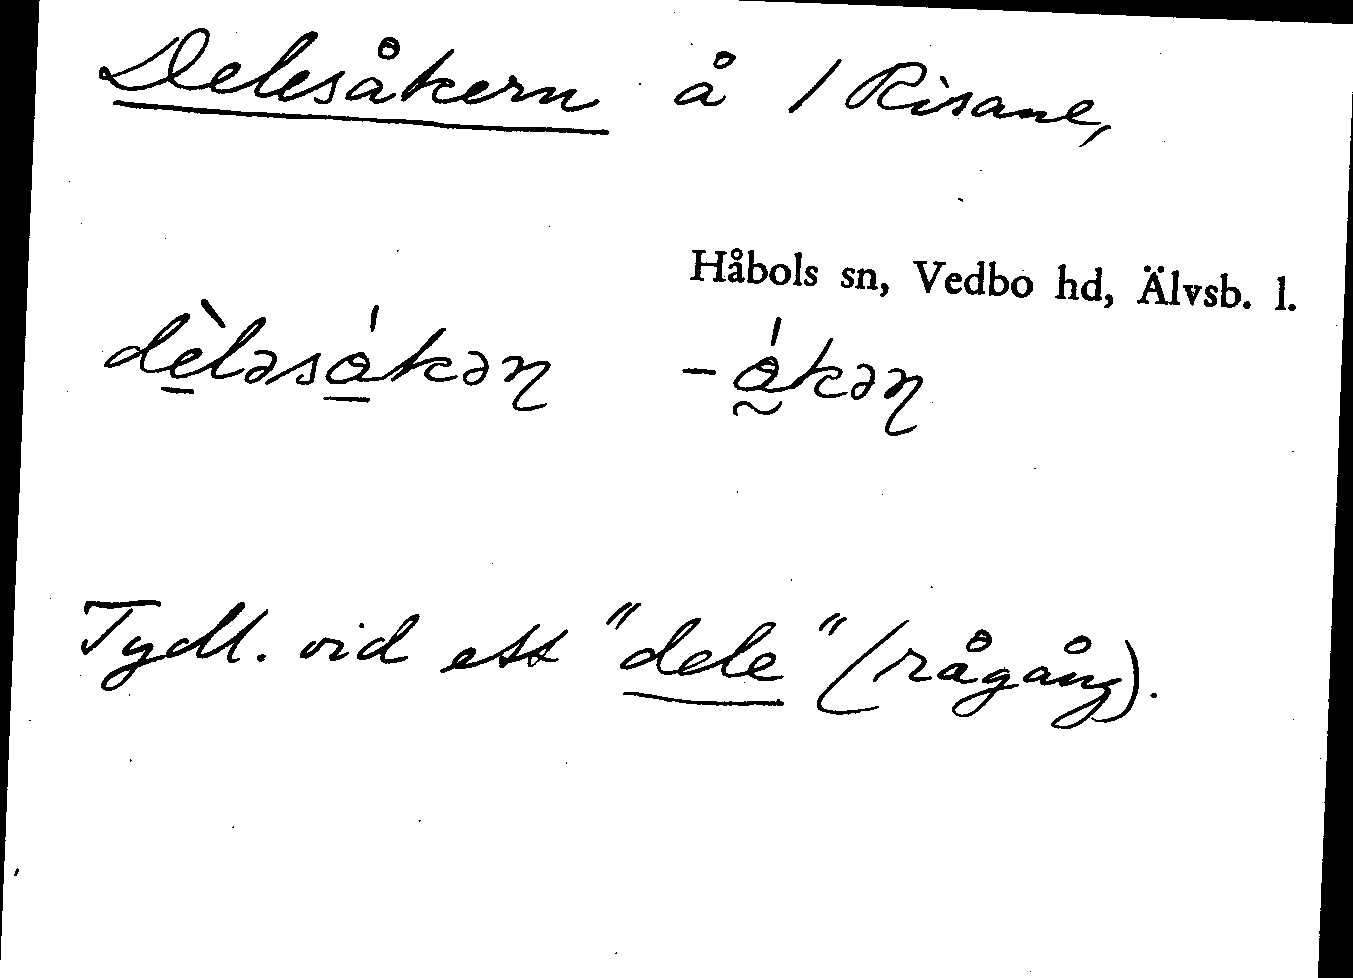 Delesåkern å / Risane,
Håbols sn, Vedbo hd, Älvsb. l.
dèləsǻkəɳ -ǻkəɳ
Tydl. vid ett "dele" (rågång).